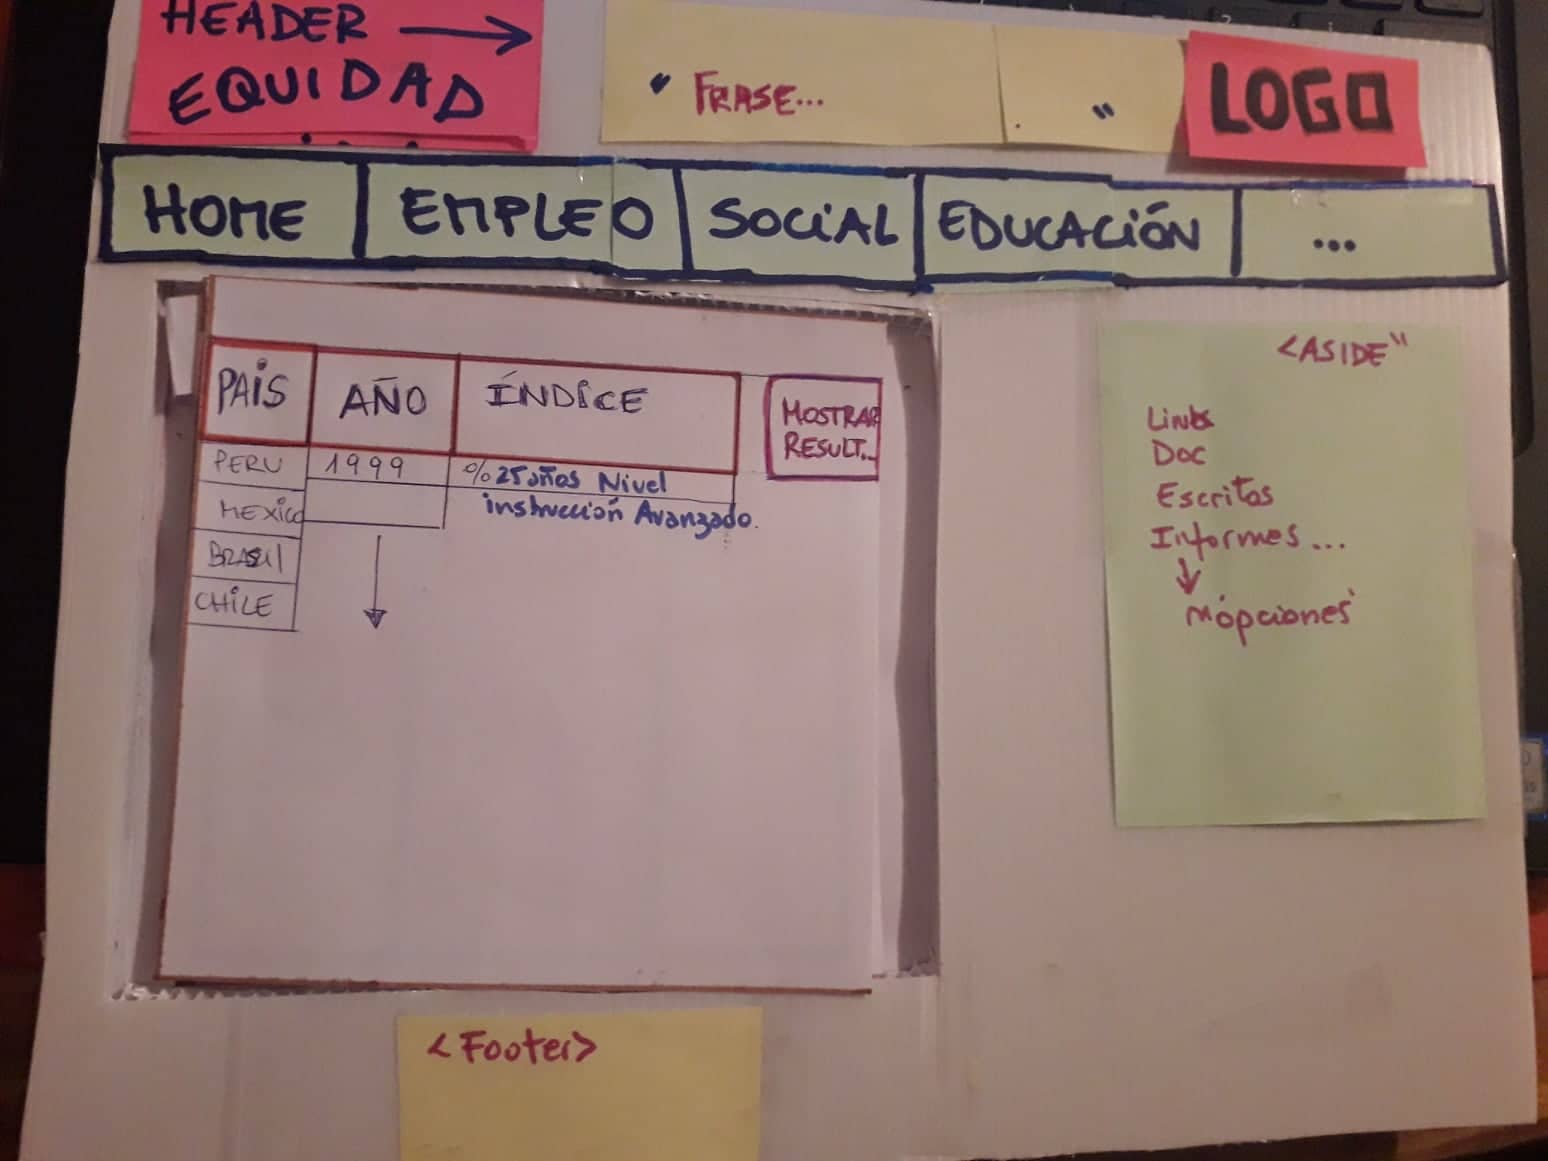 HEADER →
EQUIDAD
" FRASE... "
LOGO
HOME
EMPLEO
SOCIAL
EDUCACIÓN
...
PAIS
AÑO
ÍNDICE
MOSTRAR
RESULT...
PERU
1999
% 25 años Nivel
instrucción Avanzado.
MEXICO
BRASIL
CHILE
<ASIDE"
Links
Doc
Escritos
Informes ...
↓
"opciones"
<Footer>